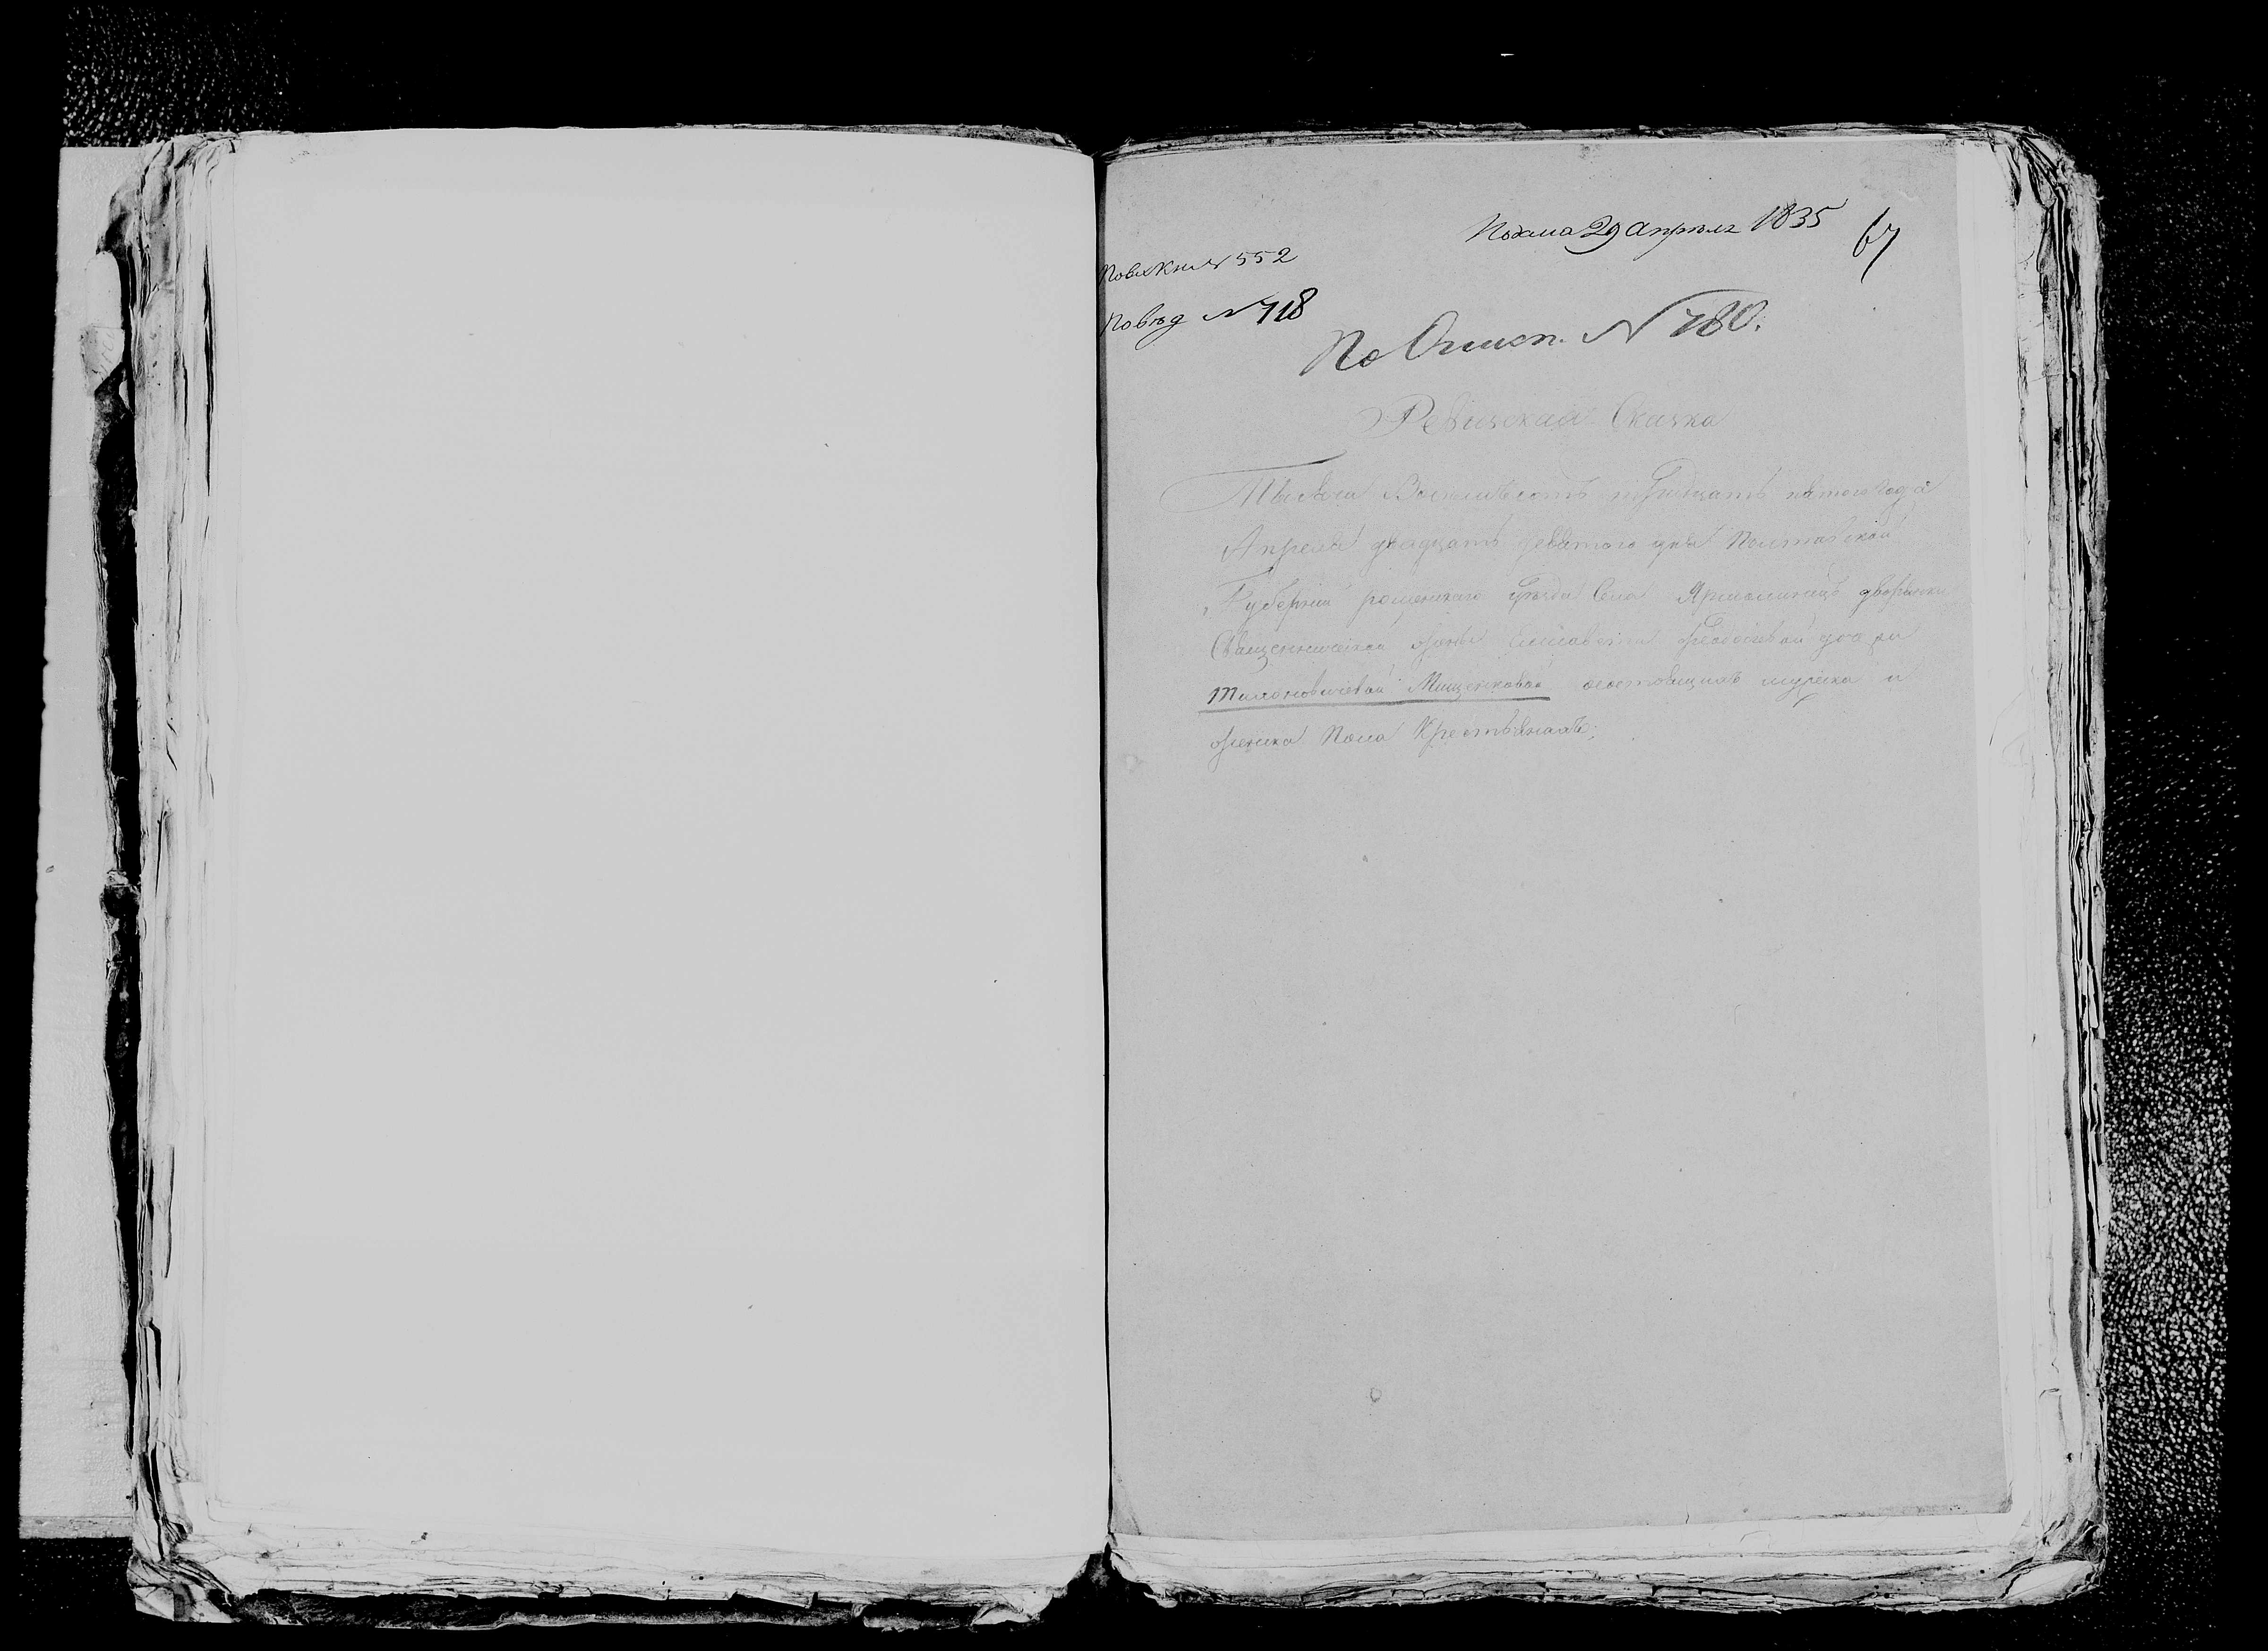 Подана 29 Апреля 1835
67
По вх Кни № 552
По вѣд № 718
По Описи. № 780.
Ревизская Сказка
Тысяча Восемьсотъ тридцать пятого года
Апреля двадцать девятого дня Полтавской
Губернии роменского уѣзда Села Ярмолинецъ дворянки
Священнической жены
Тихоновичевой Мищенковой состоящихъ мужеска и
женска Пола Крестьянахъ;